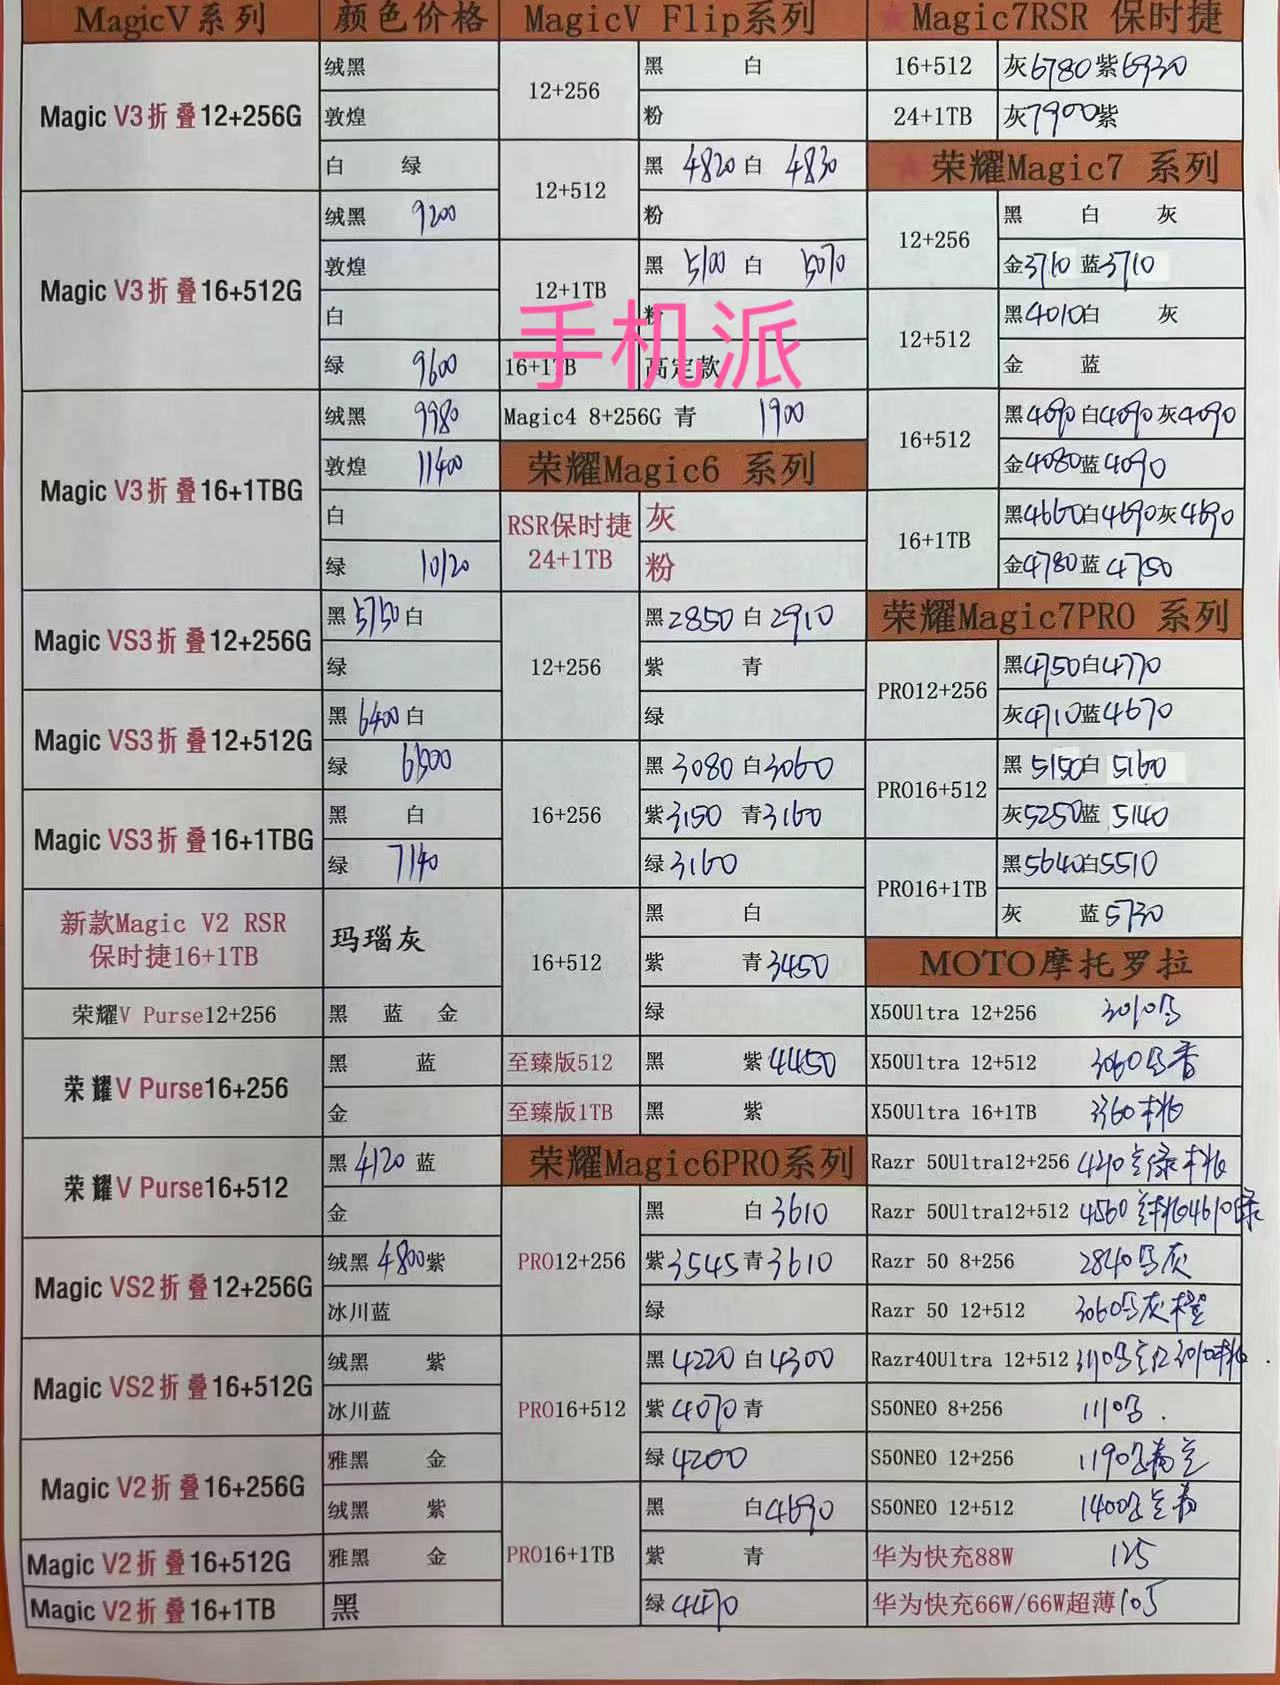 MagicV系列 颜色价格
Magic V3折叠12+256G 绒黑
敦煌
白 绿
Magic V3折叠16+512G 绒黑 9200
敦煌
白
绿 9600
Magic V3折叠16+1TBG 绒黑 9980
敦煌 11400
白
绿 10120
Magic VS3折叠12+256G 黑 5750 白
绿
Magic VS3折叠12+512G 黑 6400 白
绿
Magic VS3折叠16+1TBG 黑 白
绿 7140
新款Magic V2 RSR
保时捷16+1TB 玛瑙灰
荣耀V Purse12+256 黑 蓝 金
荣耀V Purse16+256 黑 蓝
金
荣耀V Purse16+512 黑 4120 蓝
金
Magic VS2折叠12+256G 绒黑 4800 紫
冰川蓝
Magic VS2折叠16+512G 绒黑 紫
冰川蓝
Magic V2折叠16+256G 雅黑 金
绒黑 紫
Magic V2折叠16+512G 雅黑 金
Magic V2折叠16+1TB 黑
MagicV Flip系列
12+256 黑 白
粉
12+512 黑 4820 白 4830
粉
12+1TB 黑 5100 白 5070
粉
手机派
16+1TB 高定款
Magic4 8+256G 青 1900
荣耀Magic6 系列
RSR保时捷
24+1TB 灰
粉
12+256 黑 2850 白 2910
紫 青
绿
16+256 黑 3080 白 3060
紫 3150 青 3160
绿 3160
16+512 黑 白
紫 青 3450
绿
至臻版512 黑 紫 4450
至臻版1TB 黑 紫
荣耀Magic6PRO系列
PRO12+256 黑 白 3610
紫 3545 青 3610
绿
PRO16+512 黑 4220 白 4300
紫 4070 青
绿 4200
PRO16+1TB 黑 白 4690
紫 青
绿 4470
★Magic7RSR 保时捷
16+512 灰 6780 紫 6930
24+1TB 灰 7900 紫
★荣耀Magic7 系列
12+256 黑 白 灰
金 3710 蓝 3710
12+512 黑 4010 白 灰
金 蓝
16+512 黑 4090 白 4090 灰 4090
金 4080 蓝 4090
16+1TB 黑 4660 白 4690 灰 4690
金 4780 蓝 4750
荣耀Magic7PRO 系列
PRO12+256 黑 4750 白 4770
灰 4710 蓝 4670
PRO16+512 黑 5150 白 5160
灰 5250 蓝 5140
PRO16+1TB 黑 5640 白 5510
灰 蓝 5730
MOTO摩托罗拉
X50Ultra 12+256 3010
X50Ultra 12+512 3060
X50Ultra 16+1TB 3360
Razr 50Ultra12+256 4210
Razr 50Ultra12+512 4560 4610 绿
Razr 50 8+256 2840 灰
Razr 50 12+512 3060 灰橙
Razr40Ultra 12+512
S50NEO 8+256 1110
S50NEO 12+256 1190
S50NEO 12+512 1400
华为快充88W 125
华为快充66W/66W超薄 105